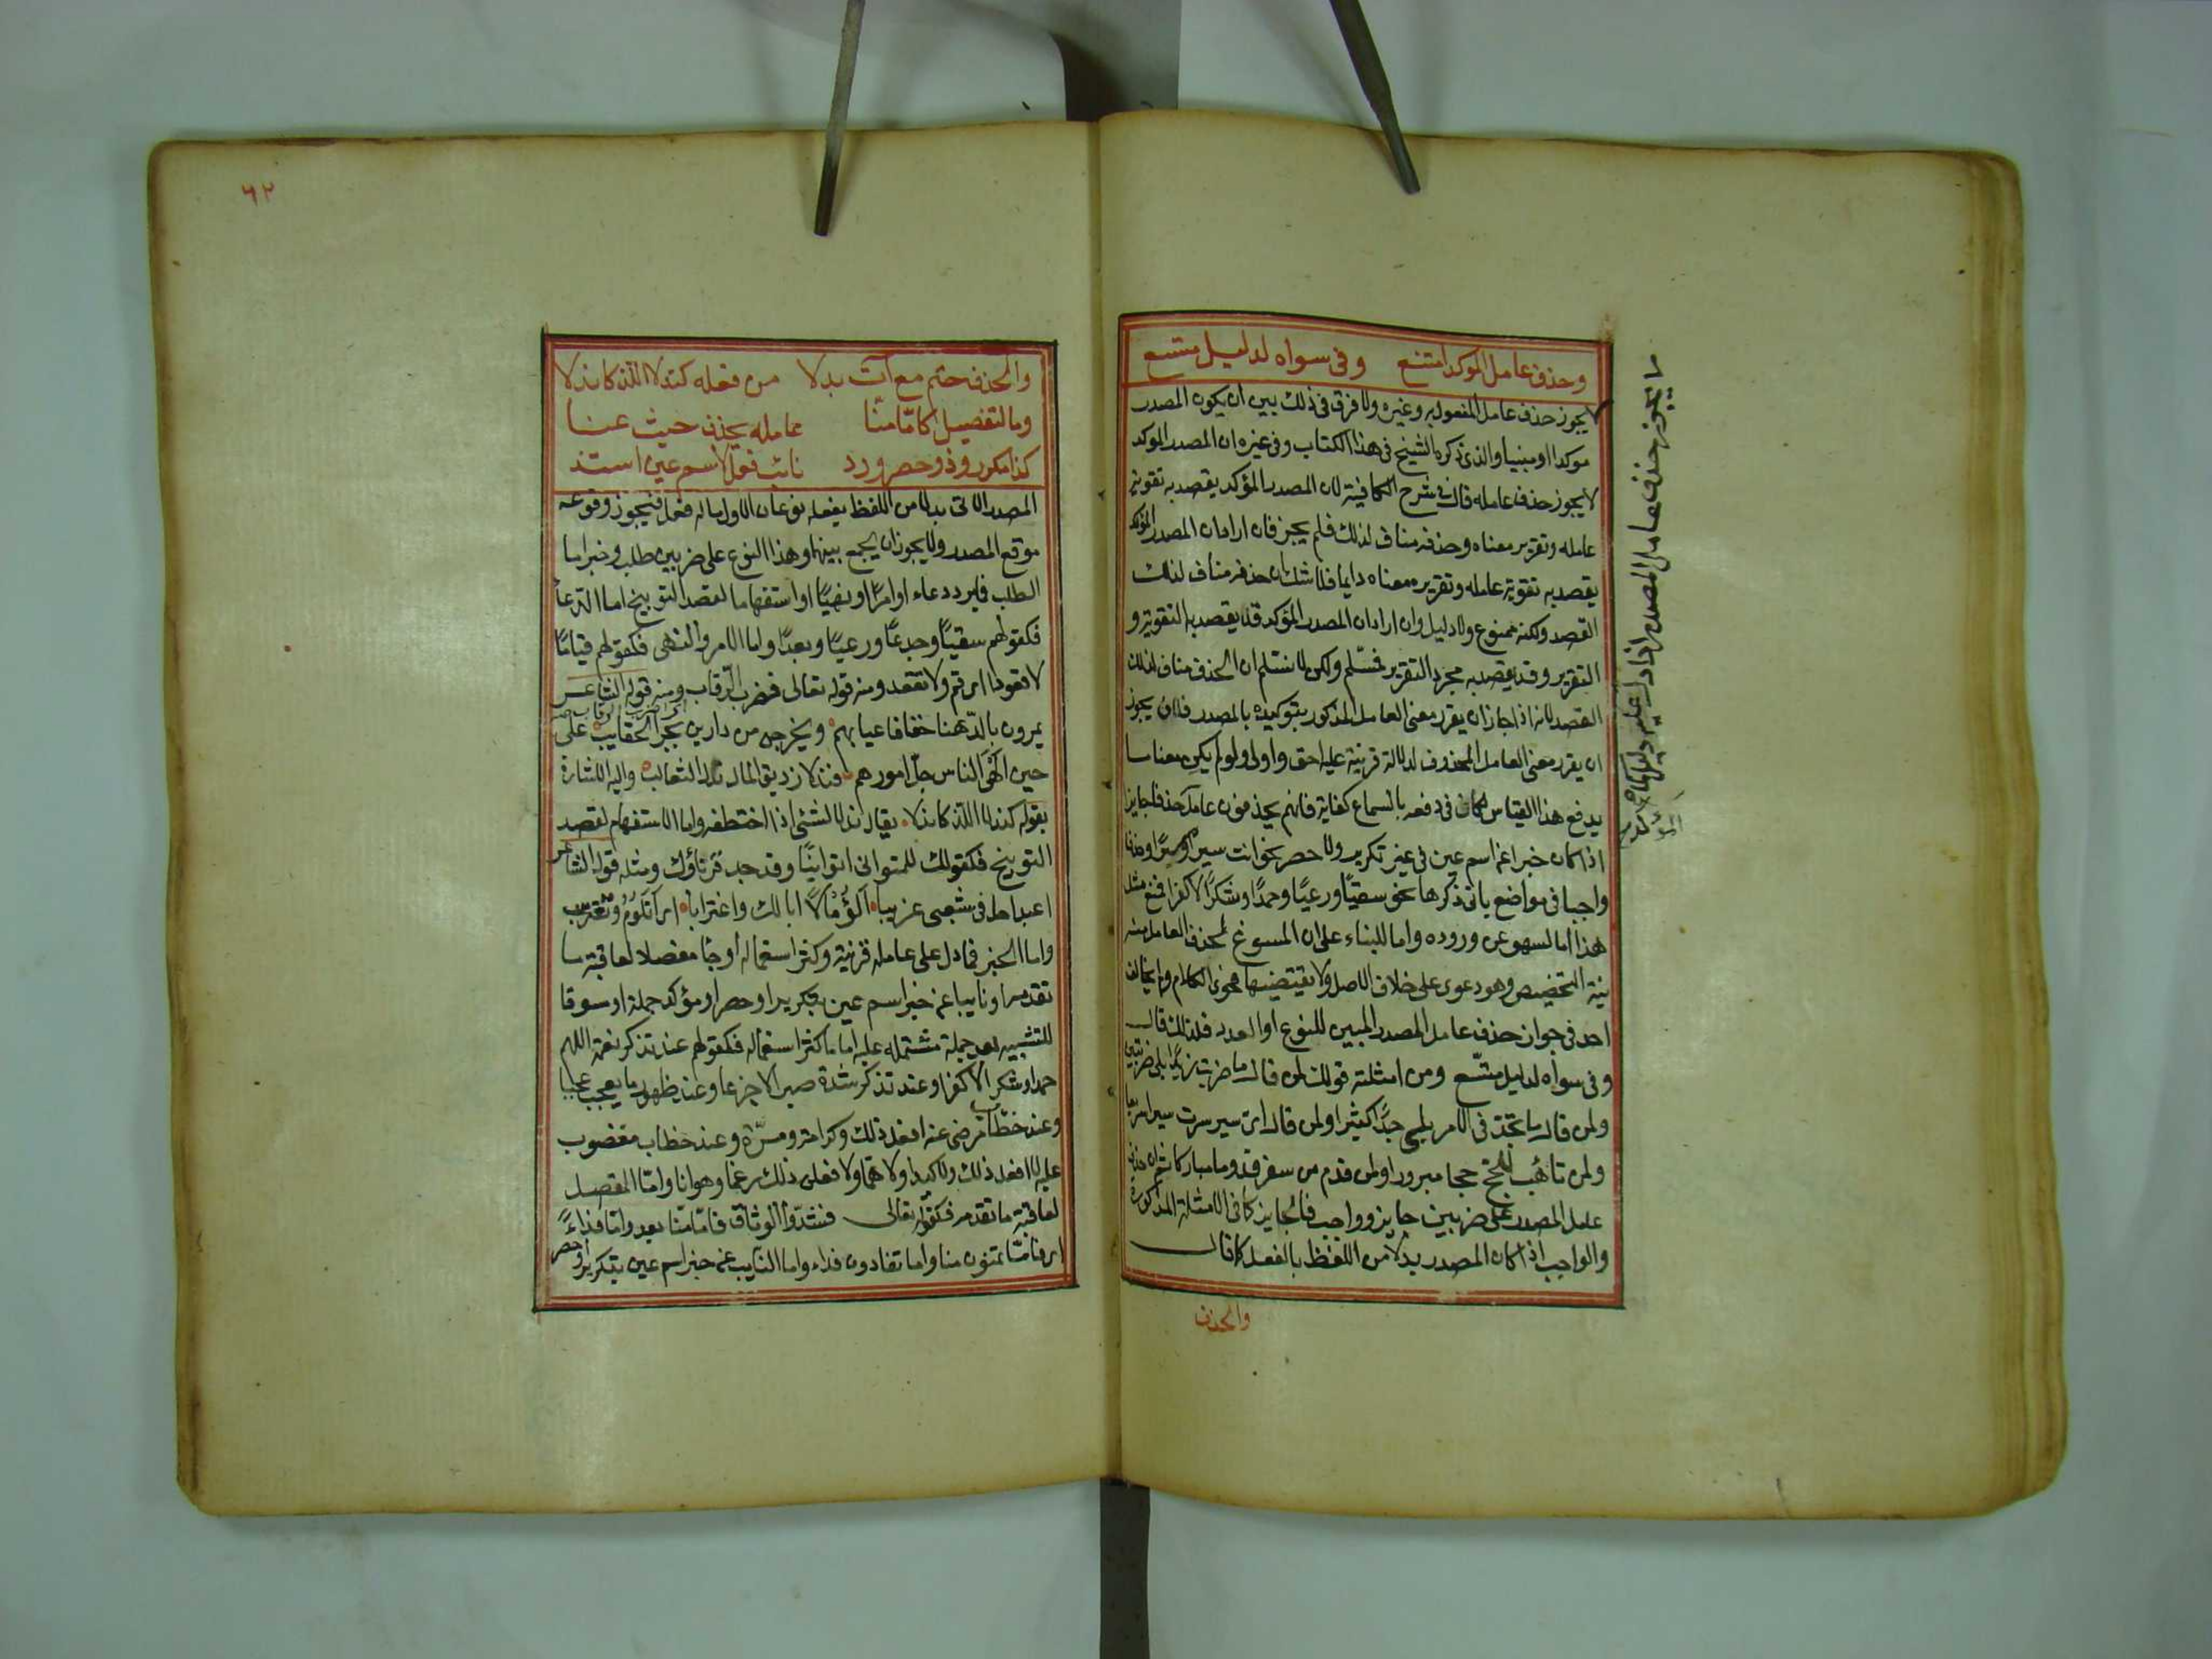 وحذف عامل الموكد امتنع وفي سواه لدليل متسع
لا يجوز حذف عامل المفعول به وغيره ولا فرق في ذلك بين ان يكون المصدر
موكدا او مبنيا والذي ذكره الشيخ في هذا الكتاب وفي غيره ان المصدر الموكد
لا يجوز حذف عامله قال في شرح الكافية لان المصدر المؤكد يقصد به تقوية
عامله وتقرير معناه وحذفه مناف لذلك فلم يجز فان اراد ان المصدر المؤكد
يقصد به تقوية عامله وتقرير معناه دايما فلا شك ان حذفه مناف لذلك
القصد ولكنه ممنوع ولا دليل وان اراد ان المصدر المؤكد قد يقصد به التقوية و
التقرير وقد يقصد به مجرد التقرير فمسلم ولكن لا نسلم ان الحذف مناف لذلك
القصد لانه اذا جاز ان يقرر معنى العامل المذكور بتوكيده بالمصدر فلان يجوز
ان يقرر معنى العامل المحذوف لدلالة قرينة عليه احق واولى ولو لم يكن معنا ما
يدفع هذا القياس لكان في دفعه بالسماع كفاية فانهم يحذفون عامله حذفا جايزا
اذا كان خبرا عن اسم عين في غير تكرير ولا حصر نحو انت سيرا وميرا وحذفا
واجبا في مواضع ياتي ذكرها نحو سقيًا ورعيًا وحمدًا وشكرًا لا كفرا فمنع مثل
هذا اما لسهو عن وروده واما للبناء على ان المسوغ لحذف العامل منه
نية التخصيص وهو دعوى على خلاف الاصل ولا يقتضيها فحوى الكلام ولم يخالف
احد في جواز حذف عامل المصدر المبين للنوع او العدد فلذلك قال
وفي سواه لدليل متسع ومن امثلته قولك لمن قال ما ضربت زيدًا بلى ضربتين
ولمن قال ما تجد في الامر بلى جدًّا كثيرا ولمن قال اي سير سرت سيرا سريعا
ولمن تاهب للحج حجا مبرورا ولمن قدم من سفر قدوما مباركا ثم ان حذف
عامل المصدر على ضربين جايز وواجب فالجايز كما في الامثلة المذكورة
والواجب اذا كان المصدر بدلا من اللفظ بالفعل كما قال
والحذف
لا يجوز حذف عامل المصدر اذا دل عليه دليل كما
٦٢
والحذف حتم مع آت بدلا من فعله كندلا اللذ كاندلا
وما لتفصيل كامّا منّا عامله يحذف حيث عنا
كذا مكرر وذو حصر ورد نائب فعل لاسم عين استند
المصدر الاتي بدلا من اللفظ بفعله نوعان الاول ما له فعل فيجوز وقوعه
موقع المصدر ولا يجوز ان يجمع بينهما وهذا النوع على ضربين طلب وخبر اما
الطلب فما يرد دعاء او امرًا او نهيًا او استفهاما لقصد التوبيخ اما الدعا
فكقولهم سقيًا وجدعًا ورعيًا وبعدًا واما الامر والنهي فكقولهم قيامًا
لا قعودا اي قم ولا تقعد ومنه قوله تعالى فضرب الرقاب ومنه قول الشاعر
يمرون بالدهنا خفافا عيابهم ويخرجن من دارين بجر الحقايب على
حين الهى الناس جل امورهم فندلا زريق المال ندل الثعالب واليه الاشارة
بقوله كندلا اللذ كاندلا يقال ندل الشئ اذا اختطفه واما الاستفهام لقصد
التوبيخ فكقولك للمتواني اتوانيًا وقد جد قرناؤك ومثله قول الشاعر
اعبدا حل في شعبى غريبا ألؤمًا لا ابا لك واغترابا اي اتلوم وتغترب
واما الخبر فما دل على عامله قرينة وكثر استعماله او جا مفصلا لعاقبة ما
تقدمه او نايبا عن خبر اسم عين بتكرير او حصر او مؤكد جملة او سوقا
للتشبيه بعد جملة مشتمله عليه اما ما كثر استعماله فكقولهم عند تذكر نعمة اللهم
حمدا وشكرا لا كفرا وعند تذكر شدة صبرا لا جزعا وعند ظهور ما يعجب عجبا
وعند خطاب مرضى عنه افعل ذلك وكرامة ومسرّة وعند خطاب مغضوب
عليه لا افعل ذلك ولا كيدا ولا هما ولا فعلن ذلك رغما وهوانا واما المفصل
لعاقبة ما تقدمه فكقوله تعالى فشدّوا الوثاق فامّا منّا بعد وامّا فداءً
اي فاما تمنون منا واما تفادون فداء واما النايب عن خبر اسم عين بتكرير او حصر